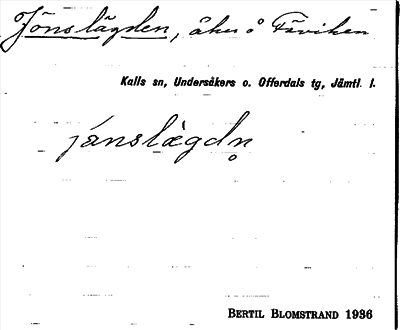 Jönslägden, åker å Fäviken
Kalls sn, Undersåkers o. Offerdals tg, Jämtl. l.
jänslägdn̥
BERTIL BLOMSTRAND 1936